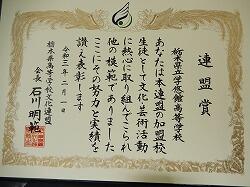 連盟賞
栃木県立学悠館高等学校
あなたは本連盟の加盟校
生徒として文化芸術活動
に熱心に取り組んでこられ
他の模範でありました
ここにその努力と実績を
讃え表彰します
令和三年二月一日
栃木県高等学校文化連盟
会長 石川明範